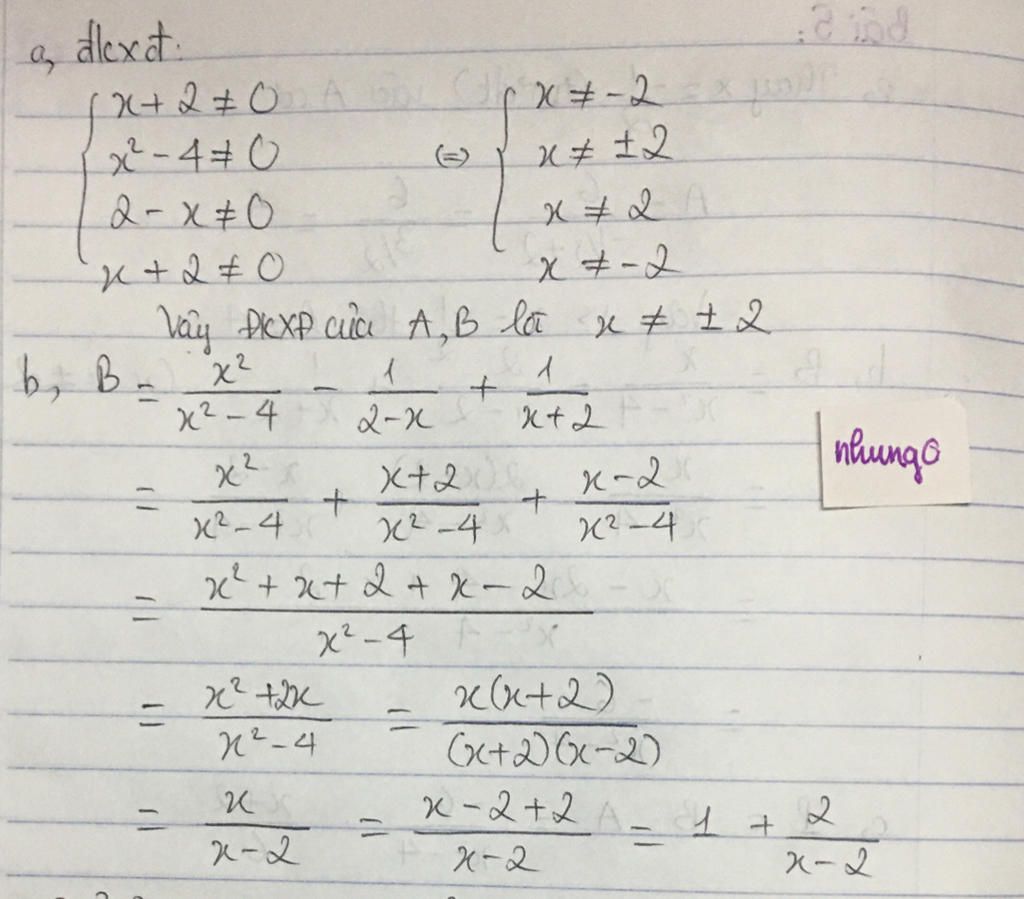 a, đkxđ:
x + 2 ≠ 0 x ≠ -2
x² - 4 ≠ 0 (=) x ≠ ±2
2 - x ≠ 0 x ≠ 2
x + 2 ≠ 0 x ≠ -2
Vậy ĐKXĐ của A, B là x ≠ ± 2
b, B = x²/(x² - 4) - 1/(2 - x) + 1/(x + 2)
nhungo
= x²/(x² - 4) + (x + 2)/(x² - 4) + (x - 2)/(x² - 4)
= (x² + x + 2 + x - 2)/(x² - 4)
= (x² + 2x)/(x² - 4) = x(x + 2)/((x + 2)(x - 2))
= x/(x - 2) = (x - 2 + 2)/(x - 2) = 1 + 2/(x - 2)